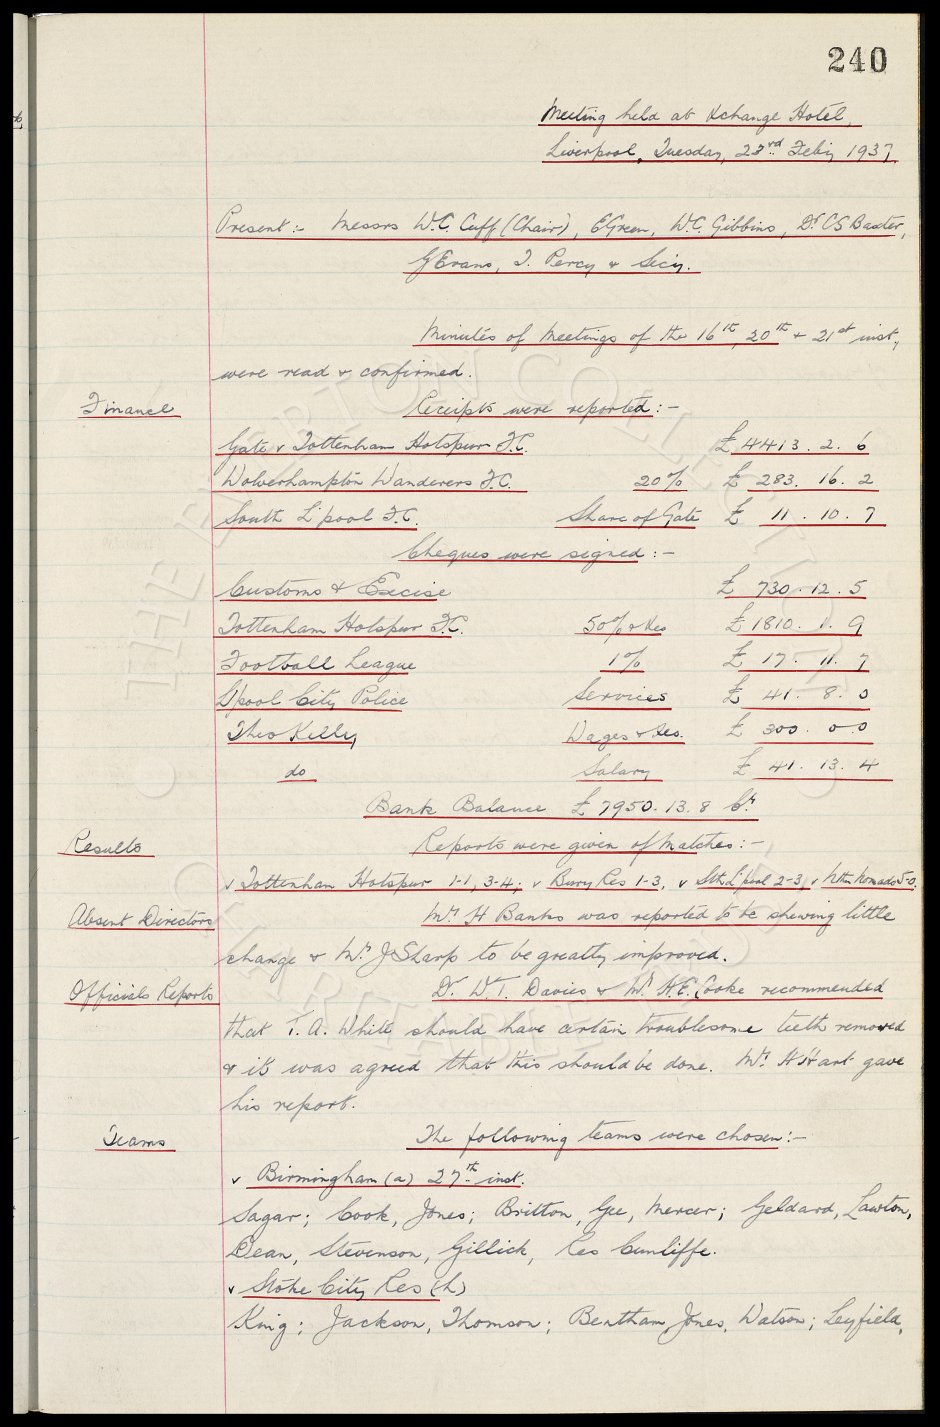 240
Meeting held at Xchange Hotel,
Liverpool, Tuesday, 23rd Feb'y 1937
Present:- Messrs W.C. Cuff (Chair), E Green, W.C. Gibbins, Dr CS Baxter,
G Evans, T. Percy & Sec'y.
Minutes of Meetings of the 16th, 20th & 21st inst,
were read & confirmed.
Finance Receipts were reported:-
Gate v Tottenham Hotspur F.C. £ 4413. 2. 6
Wolverhampton Wanderers F.C. 20% £ 283. 16. 2
South L'pool F.C. Share of Gate £ 11. 10. 7
Cheques were signed:-
Customs & Excise £ 730. 12. 5
Tottenham Hotspur F.C. 50% & Res £ 1810. 1. 9
Football League 1% £ 17. 11. 7
L'pool City Police Services £ 41. 8. 0
Theo Kelly Wages & Res. £ 300. 0. 0
do Salary £ 41. 13. 4
Bank Balance £ 7950. 13. 8 Cr
Results Reports were given of Matches:-
v Tottenham Hotspur 1-1, 3-4; v Bury Res 1-3, v Sth L'pool 2-3, v Nthn Nomads 5-0.
Absent Directors Mr H Banks was reported to be shewing little
change & Mr J Sharp to be greatly improved.
Officials Reports Dr W.T. Davies & Mr H.E. Cooke recommended
that T.A. White should have certain troublesome teeth removed
& it was agreed that this should be done. Mr H Hart gave
his report.
Teams The following teams were chosen:-
v Birmingham (a) 27th inst.
Sagar; Cook, Jones; Britton, Gee, Mercer; Geldard, Lawton,
Dean, Stevenson, Gillick, Res Cunliffe.
v Stoke City Res (h)
King; Jackson, Thomson; Bentham, Jones, Watson; Leyfield,
THE EVERTON COLLECTION
CHARITABLE